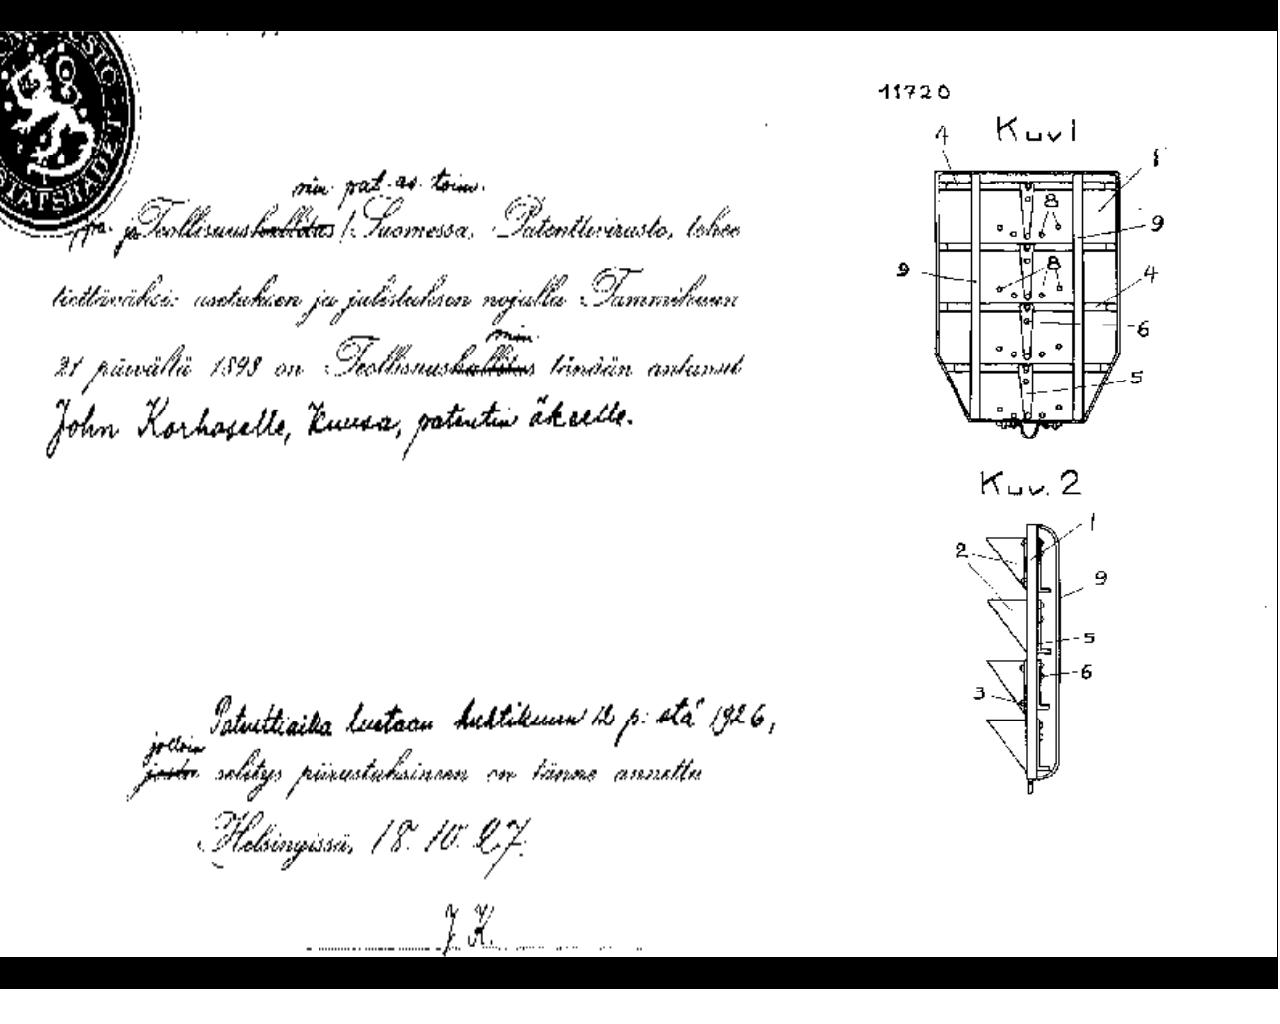 min. pat. as. toim.
ja Teollisuushallitus Suomessa, Patenttivirasto, tekee
tiettäväksi: asetuksen ja julistuksen nojalla Tammikuun
min.
21 päivältä 1898 on Teollisuushallitus tänään antanut
John Korhoselle, Kuusa, patentin äkeelle.
Patenttiaika luetaan huhtikuun 12 p:stä 1926,
jolloin
selitys piirustuksineen on tänne annettu
Helsingissä, 18.10.27.
J. K.
STATSRÅDET
11720
Kuv1
4
1
8
9
8
9
4
6
5
Kuv. 2
1
2
9
5
6
3